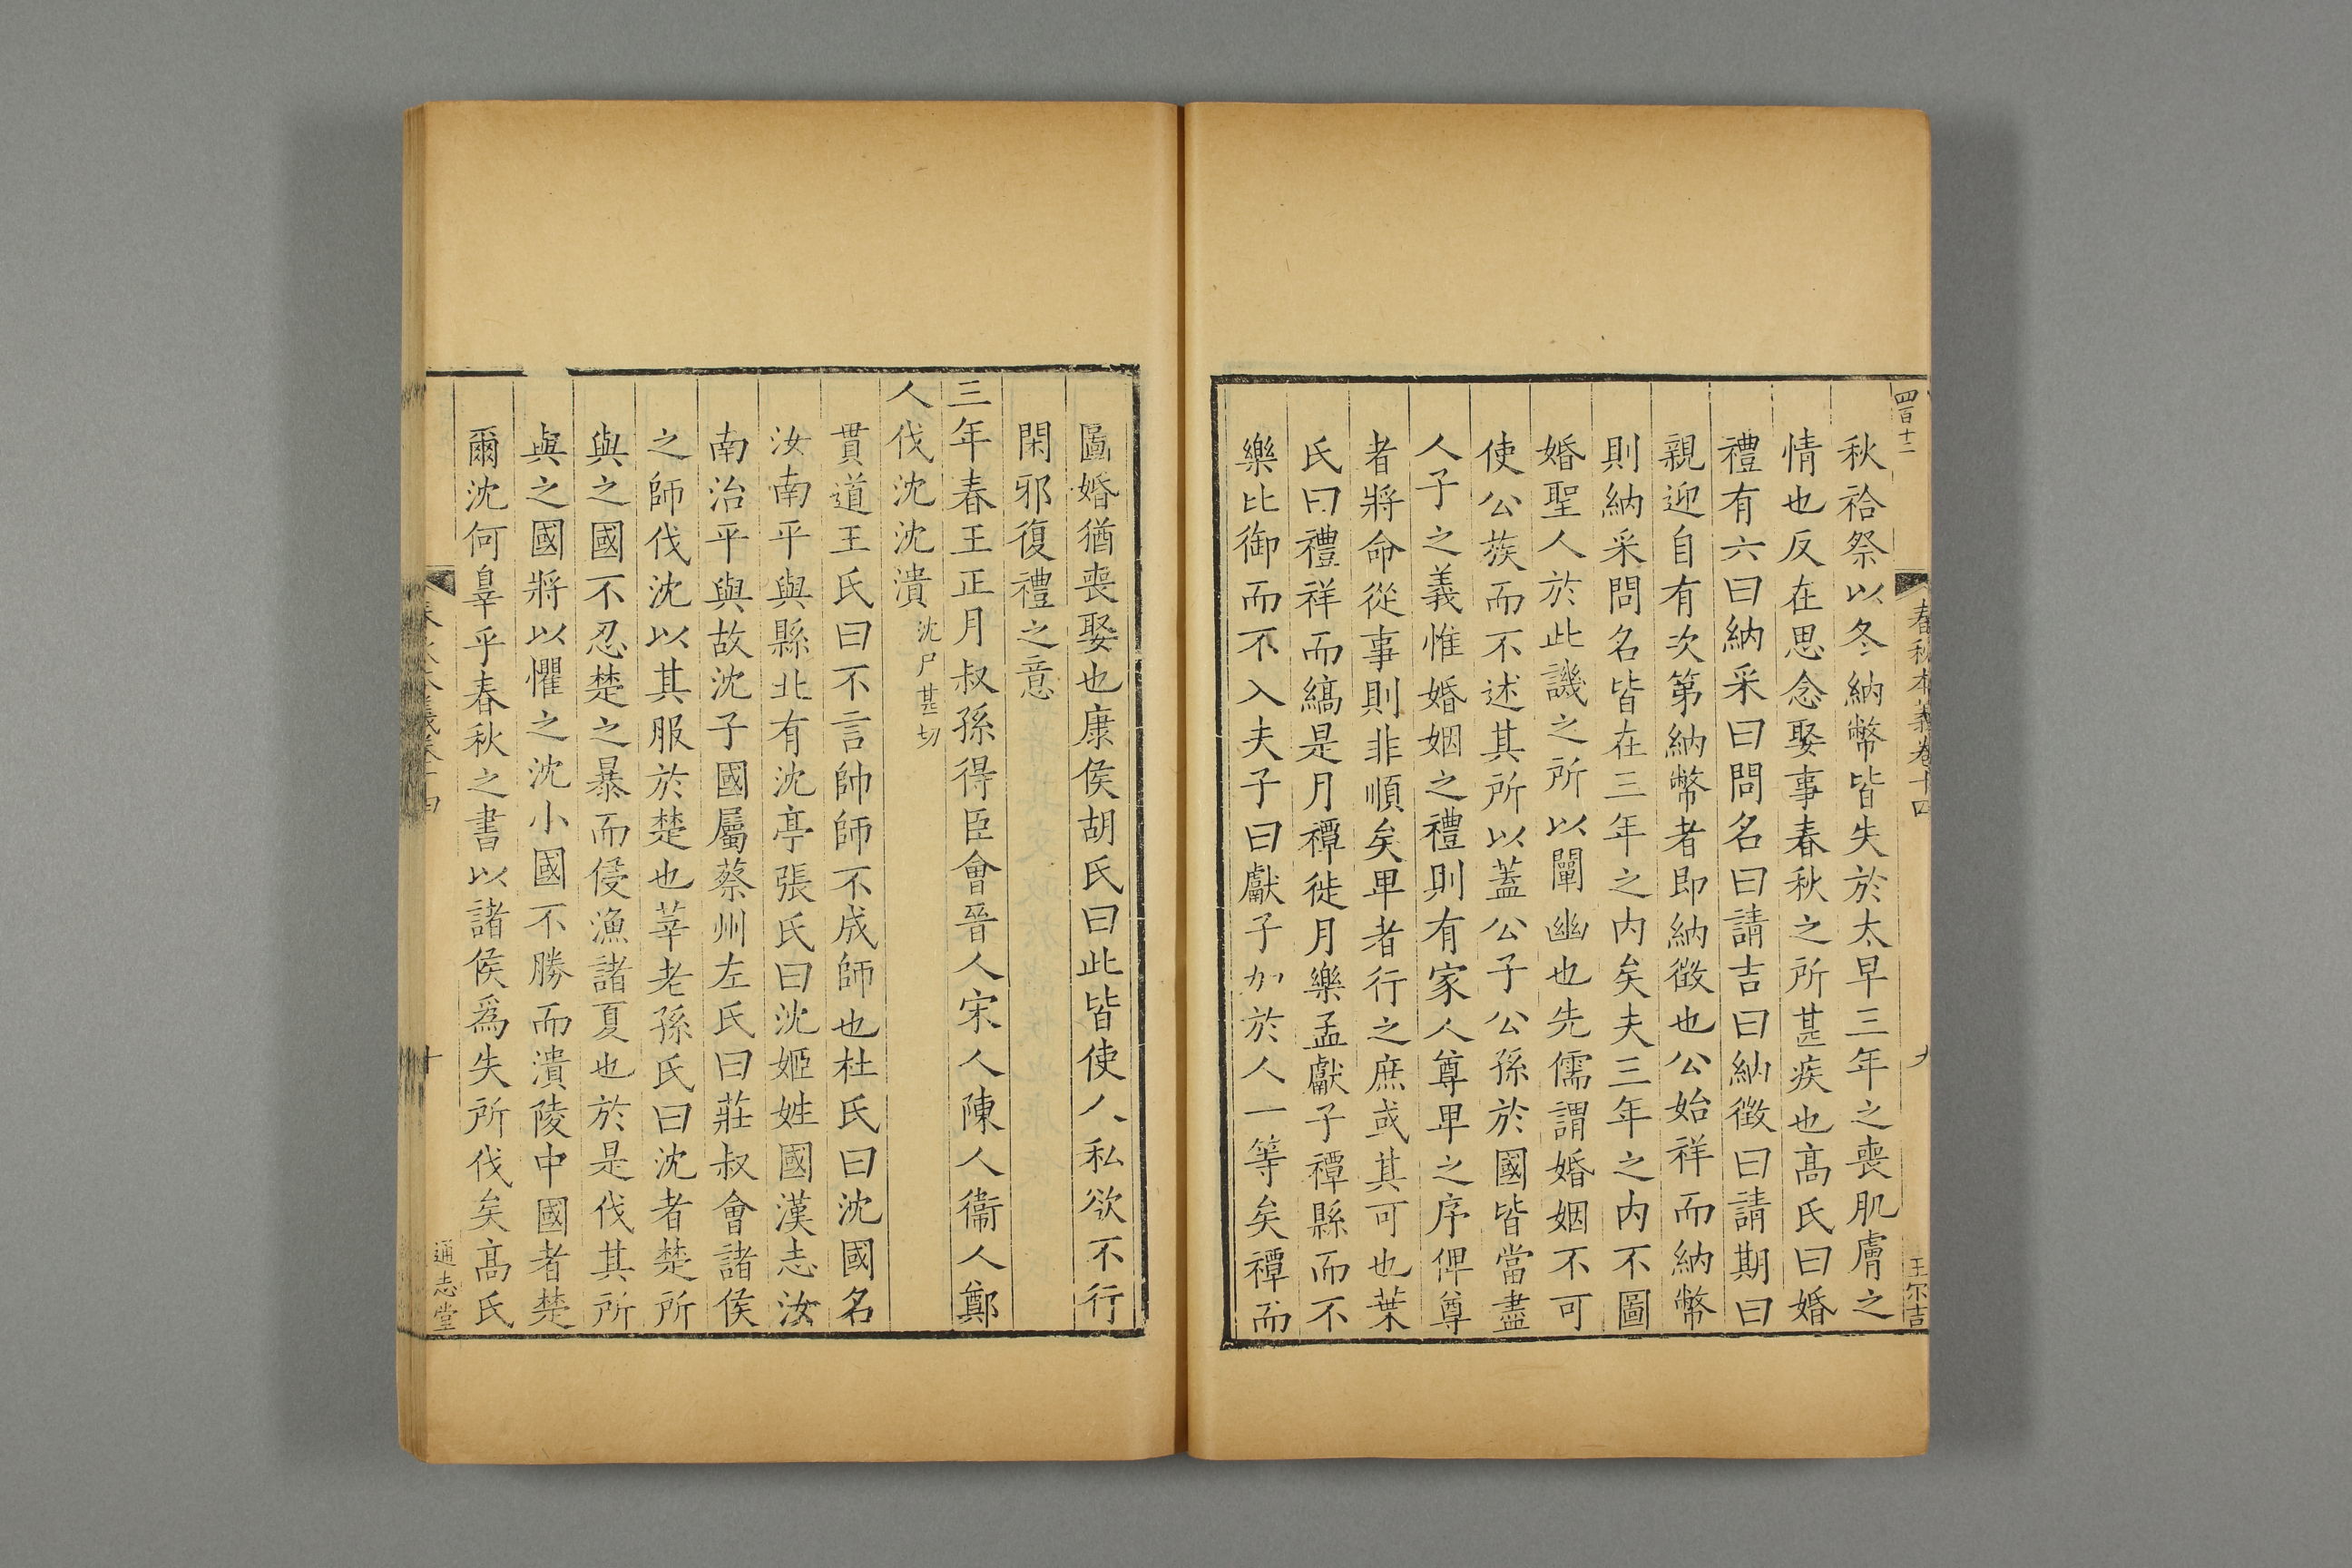 四百十二
春秋本義卷十四
九
王尔吉
秋祫祭以冬納幣皆失於太早三年之喪肌膚之
情也反在思念娶事春秋之所甚疾也髙氏曰婚
禮有六曰納采曰問名曰請吉曰納徵曰請期曰
親迎自有次第納幣者即納徵也公始祥而納幣
則納采問名皆在三年之内矣夫三年之内不圖
婚聖人於此譏之所以闡幽也先儒謂婚姻不可
使公族而不述其所以蓋公子公孫於國皆當盡
人子之義惟婚姻之禮則有家人尊卑之序俾尊
者將命從事則非順矣卑者行之庶或其可也葉
氏曰禮祥而縞是月禫徙月樂孟獻子禫縣而不
樂比御而不入夫子曰獻子加於人一等矣禫而
圖婚猶喪娶也康侯胡氏曰此皆使人私欲不行
閑邪復禮之意
三年春王正月叔孫得臣會晉人宋人陳人衞人鄭
人伐沈沈潰沈尸甚切
貫道王氏曰不言帥師不成師也杜氏曰沈國名
汝南平輿縣北有沈亭張氏曰沈姬姓國漢志汝
南治平輿故沈子國屬蔡州左氏曰莊叔會諸侯
之師伐沈以其服於楚也莘老孫氏曰沈者楚所
與之國不忍楚之暴而侵漁諸夏也於是伐其所
與之國將以懼之沈小國不勝而潰陵中國者楚
爾沈何辠乎春秋之書以諸侯爲失所伐矣髙氏
十
通志堂